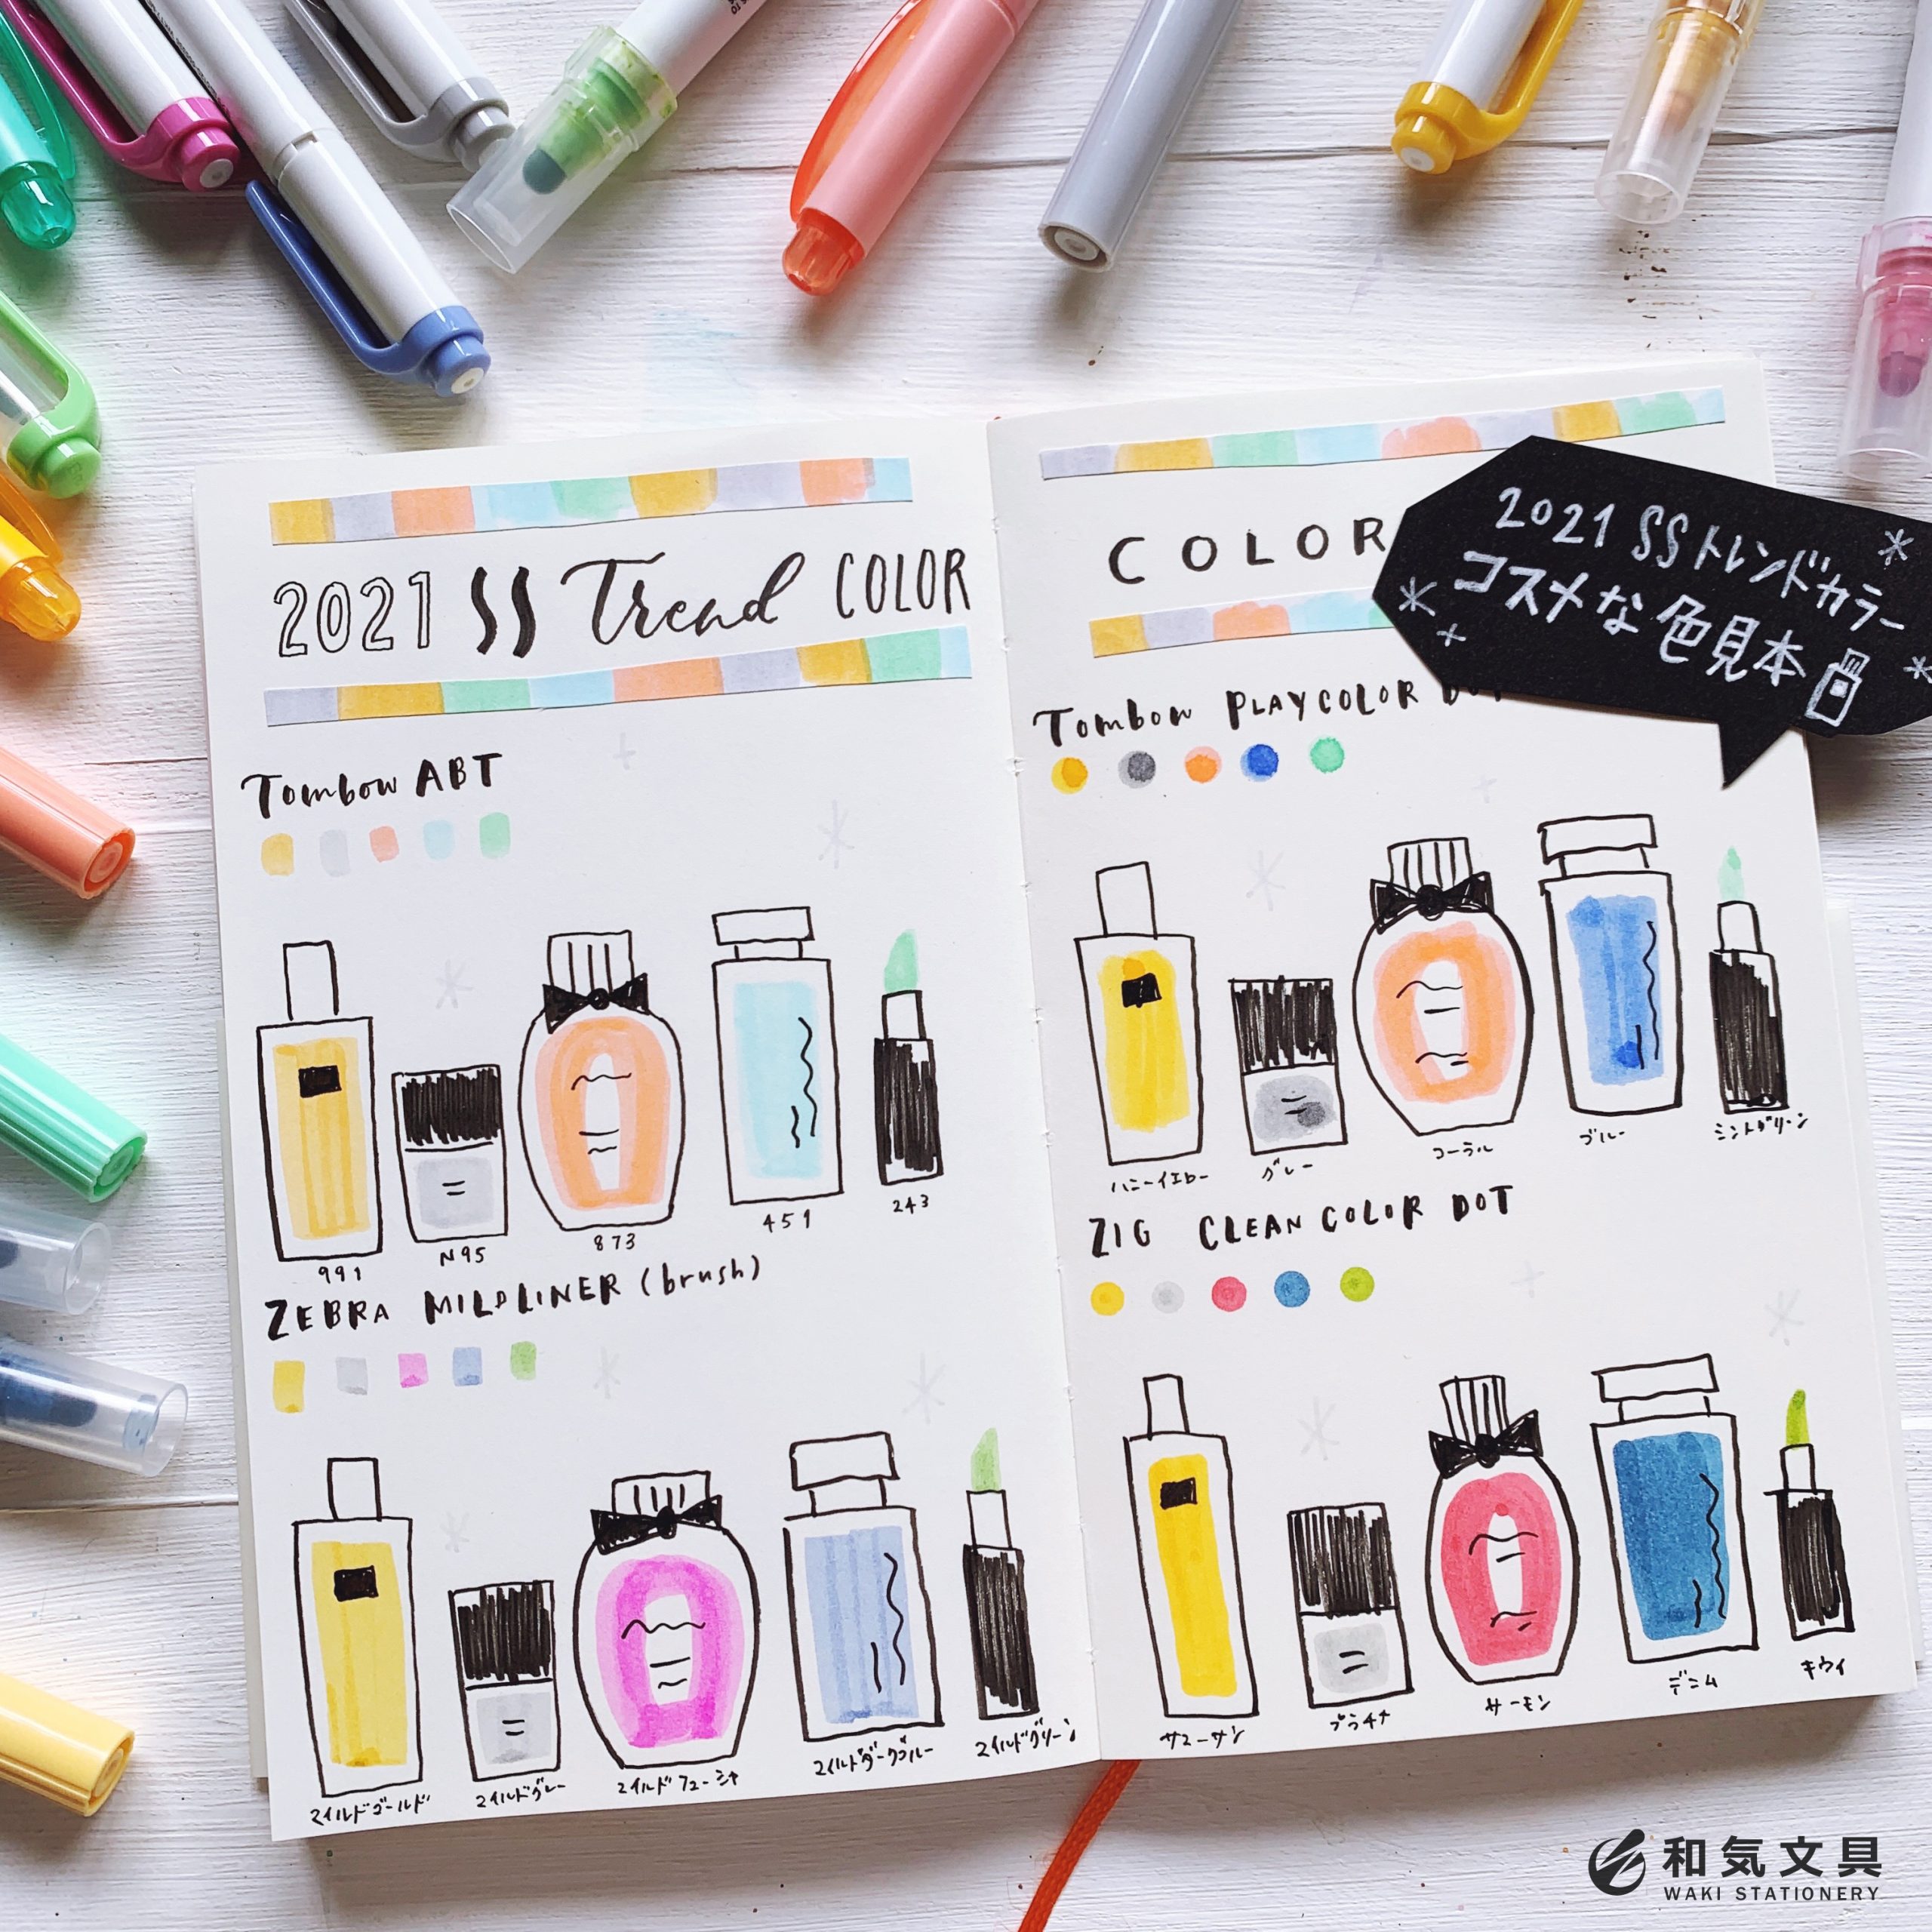 2021 SS Trend COLOR
Tombow ABT
991
N95
873
451
243
ZEBRA MILDLINER (brush)
マイルドゴールド
マイルドグレー
マイルドフューシャ
マイルドダークブルー
マイルドグリーン
COLOR
2021 SSトレンドカラー
コスメな色見本
Tombow PLAYCOLOR DOT
ハニーイエロー
グレー
コーラル
ブルー
ミントグリーン
ZIG CLEAN COLOR DOT
サニーサン
プラチナ
サーモン
デニム
キウイ
和気文具
WAKI STATIONERY